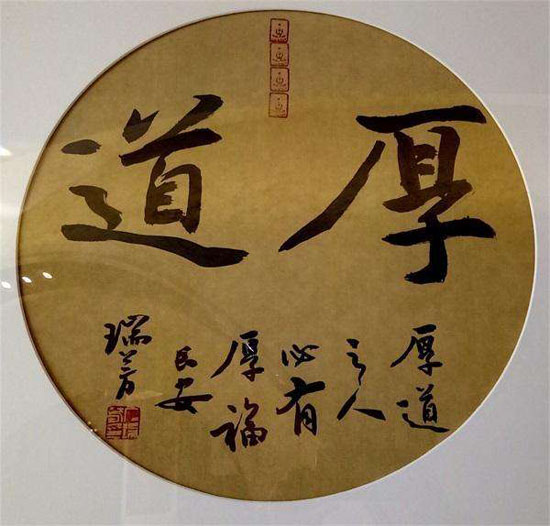 厚道
厚道
之人
必有
厚福
长安
瑞芳